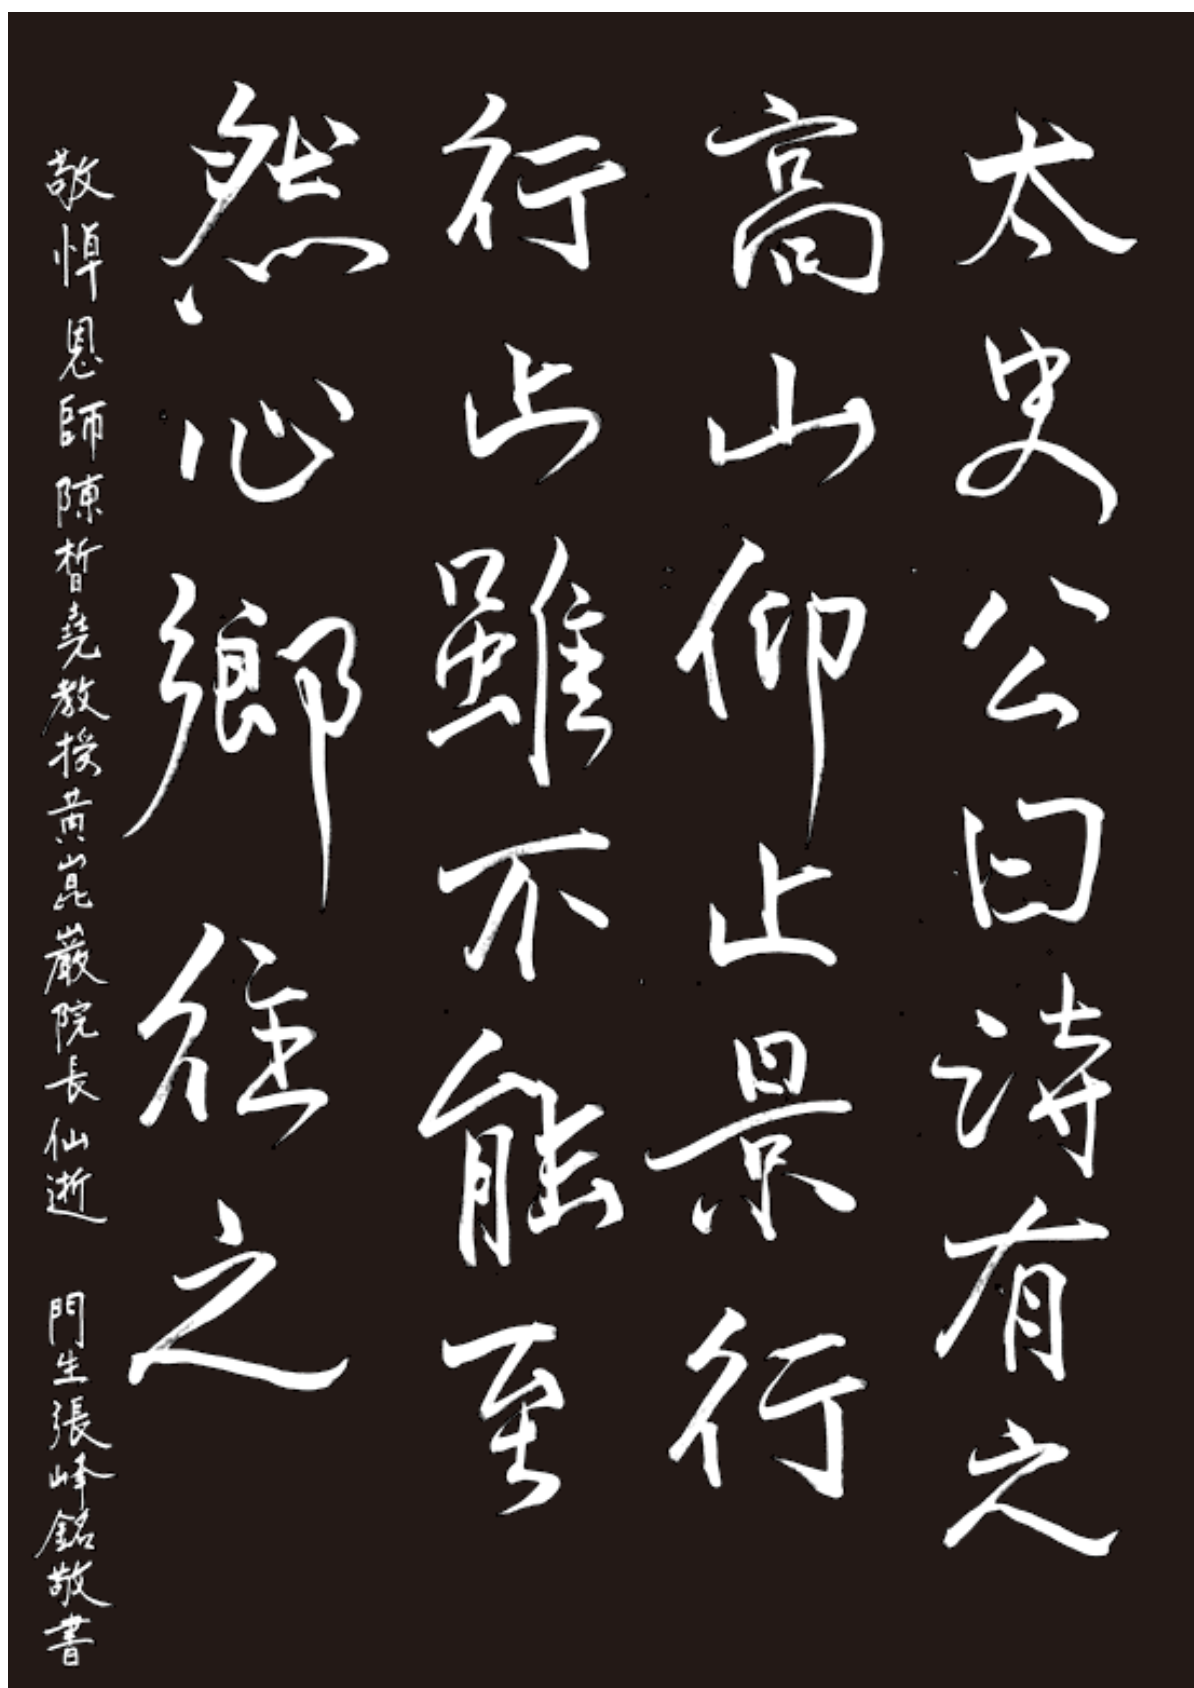 太史公曰詩有之
高山仰止景行
行止雖不能至
然心鄉往之
敬悼恩師陳晳堯教授黃崑巖院長仙逝 門生張峰銘敬書